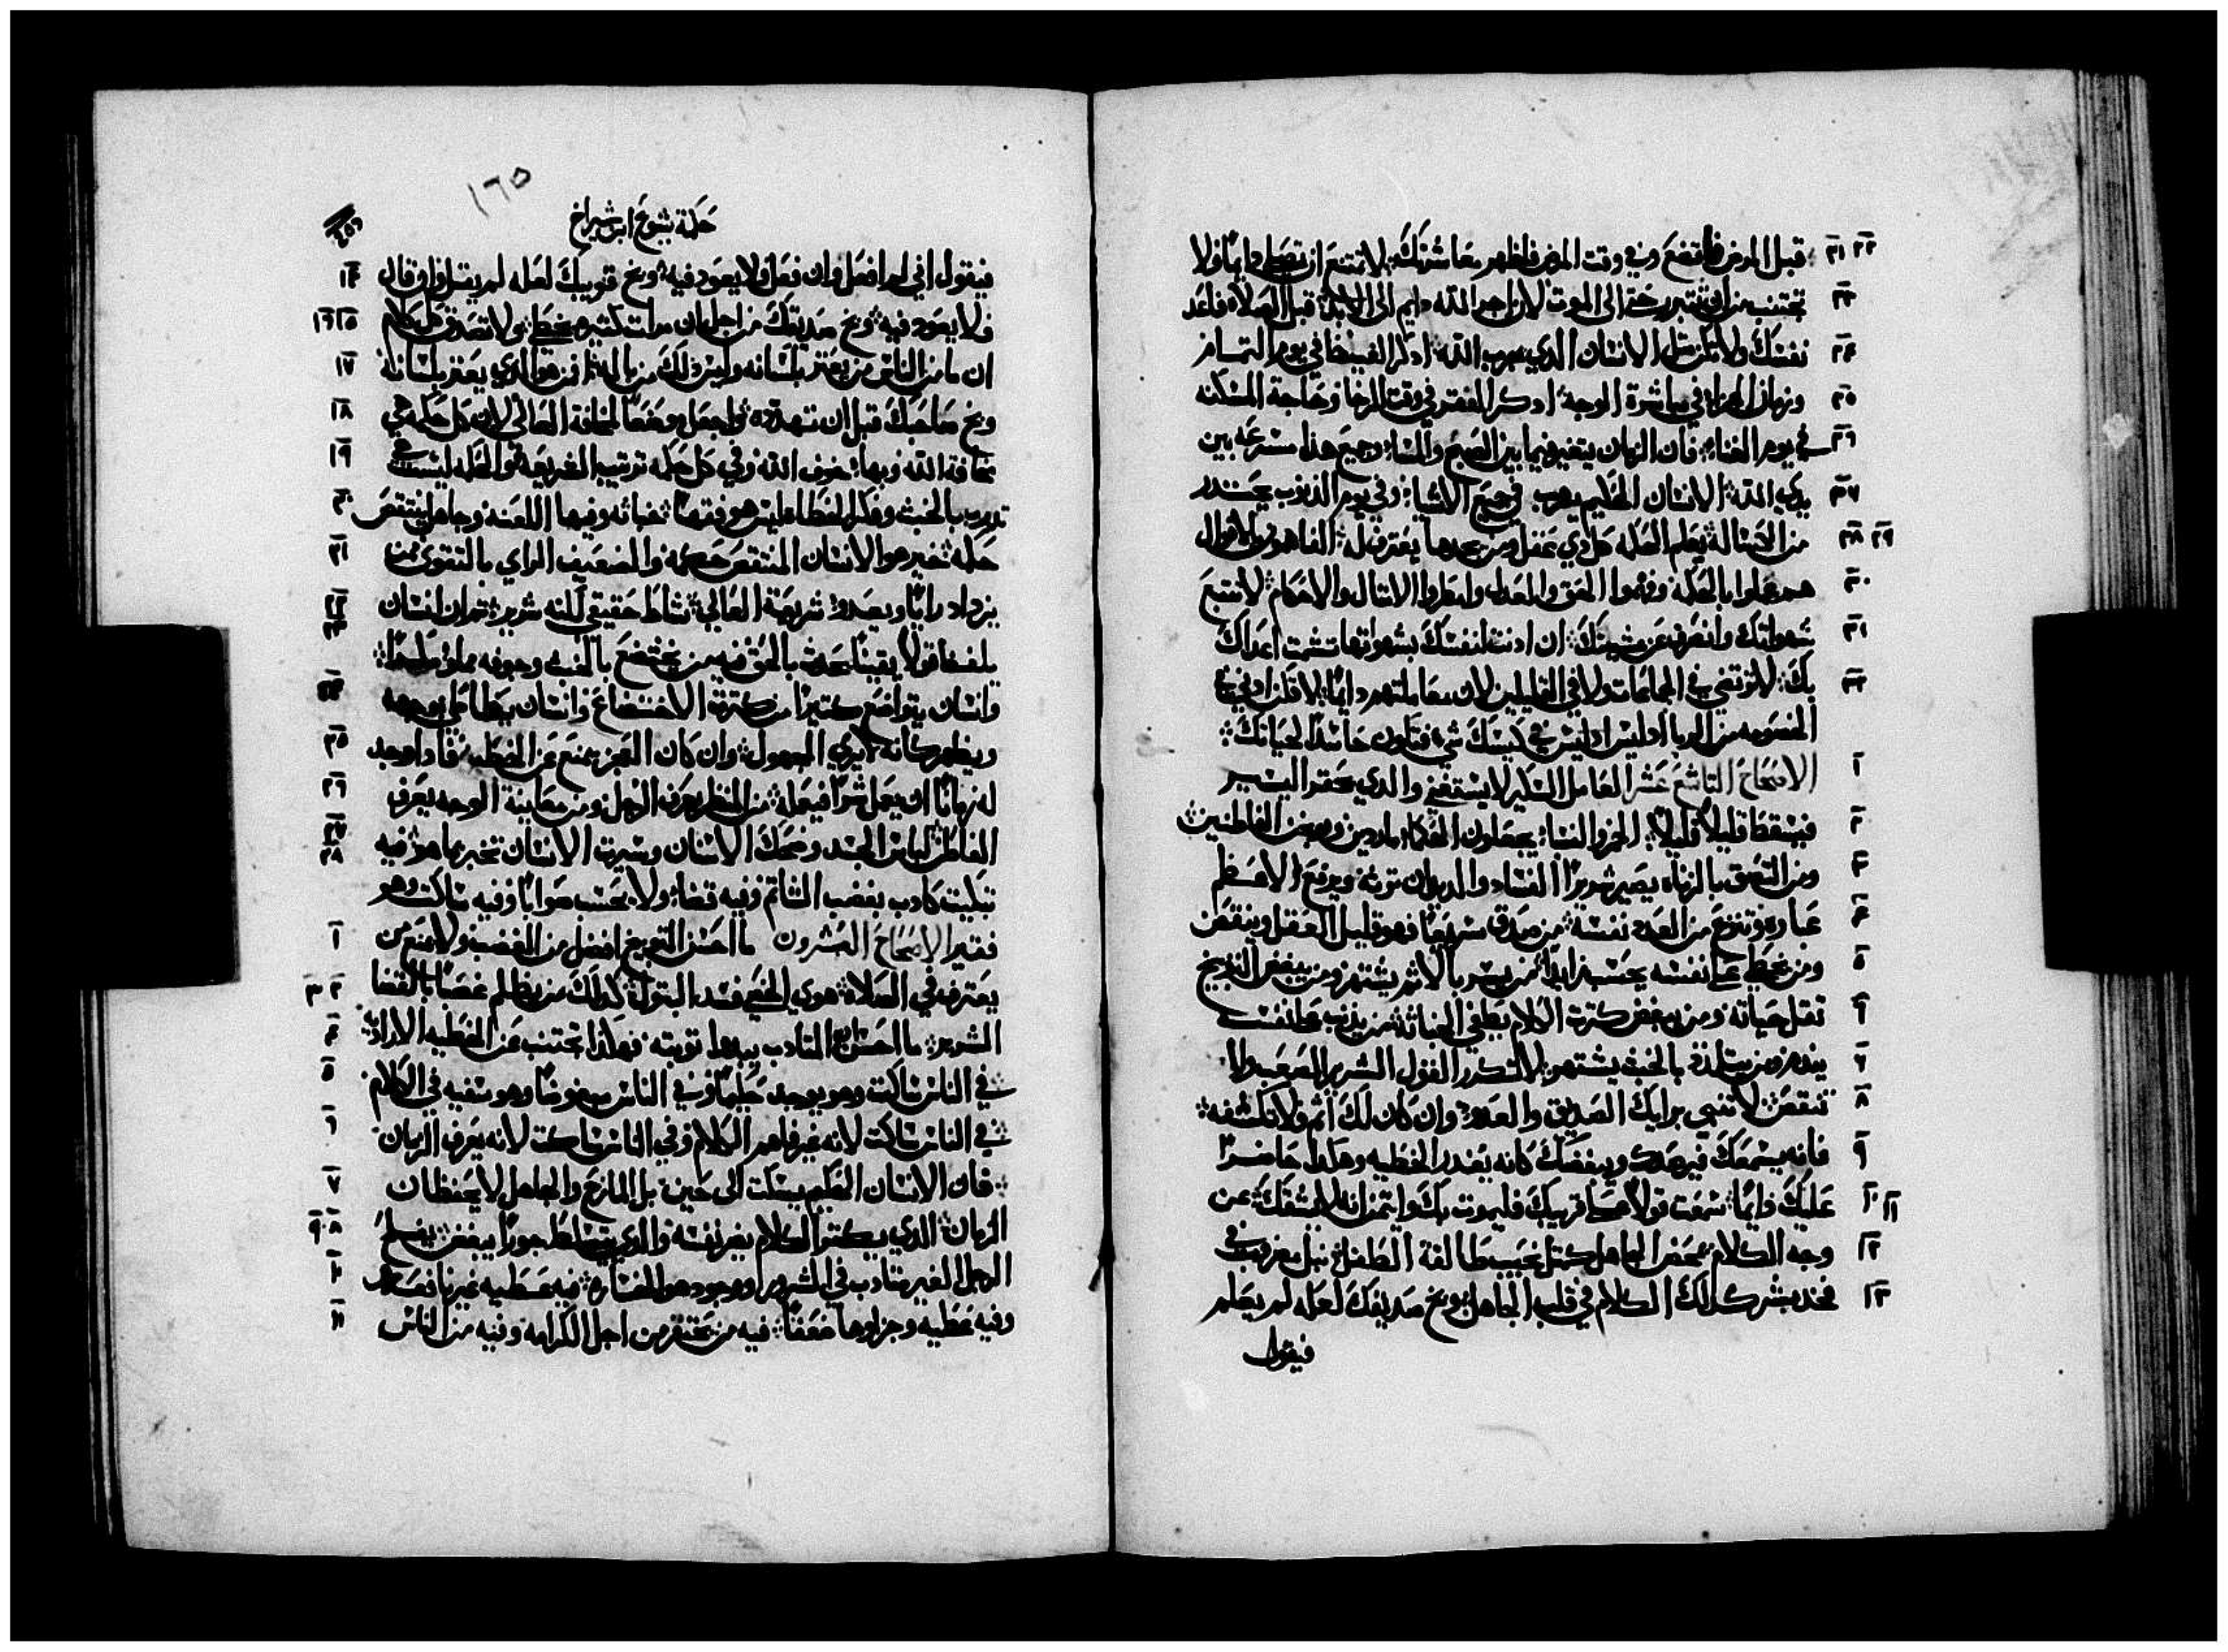 ٢١ ٢٢ قبل المرض فاتضع وفي وقت المرض فاظهر معاشرتك لا تمتنع ان تصلي دايمًا ولا
٢٣ تجتنب من ان تتبرر حتى الى الموت لان اجر الله دايم الى الابد قبل الصلاه فاعد
٢٤ نفسك ولا تكن مثل الانسان الدي يجرب الله ادكر الغيض في يوم التمام
٢٥ وزمان الجزا في مباشرة الوجه ادكر الفقر في وقت الرخا وحاجة المسكنه
٢٦ في يوم الغناء فان الزمان يتغير فيما بين الصبح والمسا وجميع هدا مسرعه بين
٢٧ يدي الله الانسان الحكيم يرهب في جميع الاشيا وفي يوم الدنوب يحتدر
٢٨ ٢٩ من الكسالة يعلم الحكمه كل دي عقل ومن يجدها يعترف له الفاهمون الاقوال
٣٠ هم عملوا بالحكمه وفهموا الحق والعدل وامطروا الامثال والاحكام لا تتبع
٣١ شهواتك وانصرف عن مشيتك ان ادنت لنفسك بشهواتها تشمت اعداك
٣٢ بك لا ترتضي في الجماعات ولا في القليلين لان معاملتهم دايمًا لا تكن ادني في
الخصومه من الربا اد ليس لك في كيسك شي فتكون حاسدًا لحياتك
١ الاصحاح التاسع عشر العامل السكير لا يستغني والدي يحتقر اليسير
٢ فيسقط قليلًا قليلًا الخمر والنسا يجعلون الحكما ماردين ويوبخن الفاطنين
٣ ومن التصق بالزناه يصير شريرًا الفساد والديدان ترثه ويرفع الاعظم
٤ عباره وتنزع من العدد نفسه من صدق سريعًا فهو قليل العقل وينقص
٥ ومن يخطي على نفسه يحسب زايدًا من يسر بالاثم يشتهر ومن يبغض التوبيخ
٦ تقل حياته ومن يبغض كترت الكلام يطفي الخباثه من يدنب على نفسه
٧ يندم ومن يتلدد بالخبث يشتهر لا تكرر القول الشرير الصعب ولا
٨ تنقص لا تنهي برايك الصديق والعدو وان كان لك اثم ولا تكشفه
٩ فانه يسمعك فيرصدك ويبغضك كانه يعدر الخطيه وهكدا حاضرًا
١٠ ١١ عليك دايمًا سمعت قولًا على قريبك فليموت بك وايتمن انه لا يشقك عن
١٢ وجه الكلام يمخض الجاهل كمثل نحيب طالقة الطفل نبل مغروسه في
١٣ فخد بشر كدلك الكلام في قلب الجاهل وبخ صديقك لعله لم يعلم
فيقول
١٦٥
حكمة يشوع ابن شيراخ
١٤ فيقول اني لم افعل وان فعل فلا يعود فيه وبخ قريبك لعله لم يقل وان قال
١٥ ١٦ فلا يعود فيه وبخ صديقك من اجل ان مرات كتيره يخطي ولا تصدق كل كلام
١٧ ان ما من الناس من يعتر بلسانه وليس دلك من باله فمن هو الدي يعتر بلسانه
١٨ وبخ صاحبك قبل ان تهدده واجعل موضعًا لمخافة العالي لان كل حكمه هي
١٩ مخافة الله وبها خوف الله وفي كل حكمه ترتيب الشريعه والحكمه ليست هي
٢٠ تدريب بالخبث وفكر الخطاه ليس هو فهمًا خباته وفيها اللعنه وجاهل ينتقص
٢١ حكمه خير هو الانسان المنتقص حكمه والضعيف الراي بالتقوى ممن
٢٢ يزداد رايًا ويعدو شريعة العالي نشاط حقيقي لكنه شرير تم ان انسان
٢٣ يلفظ قولًا يقينًا يحدث بالحق فيه من يختضع بالخبث وجوفه مملو مكرًا
٢٤ وانسان يتواضع كتيرًا من كترت الاختضاع وانسان يطاطي بوجهه
٢٥ ويظهر كانه لا يري المجهول وان كان العجز يمنع عن الخطيه فادا وجد
٢٦ له زمانًا ان يعمل شرًا فيعمله من النظر يعرف الرجل ومن معاينة الوجه يعرف
٢٧ ٢٨ الفاطن لباس الجسد وضحك الانسان وسيرت الانسان تخبر بما هو فيه
تبكيت كادب بغضب الشاتم وفيه قضا ولا يحسب صوابًا وفيه ساكت وهو
١ فقير الاصحاح العشرون ما احسن التوبيخ افضل من الغضب ولا يمنع من
٢ ٣ يعترف في الصلاة هوي الخصي فسد البتول كدلك من يظلم غصبًا بالقضا
٤ الشرير ما احسن ان المتادب يبدا توبته فهكدا تجتنب عن الخطيه الاراديه
٥ في الناس ساكت وهو يوجد حكيمًا وفي الناس مبغوضًا وهو سفيه في الكلام
٦ في الناس ساكت لانه غير فاهم الكلام وفي الناس ساكت لانه يعرف الزمان
٧ فان الانسان الحكيم يسكت الى حين بل المازح والجاهل لا يحفظان
٨ ٩ الزمان الدي يكتر الكلام يضر نفسه والدي يتسلط جورًا يبغض يفلح
١٠ الرجل الغير متادب في الشرور ووجوده هو الخساره فيه عطيه غير نافعه
١١ وفيه عطيه وجزاوها ضعفًا فيه من يحتقر من اجل الكرامه وفيه من الناس